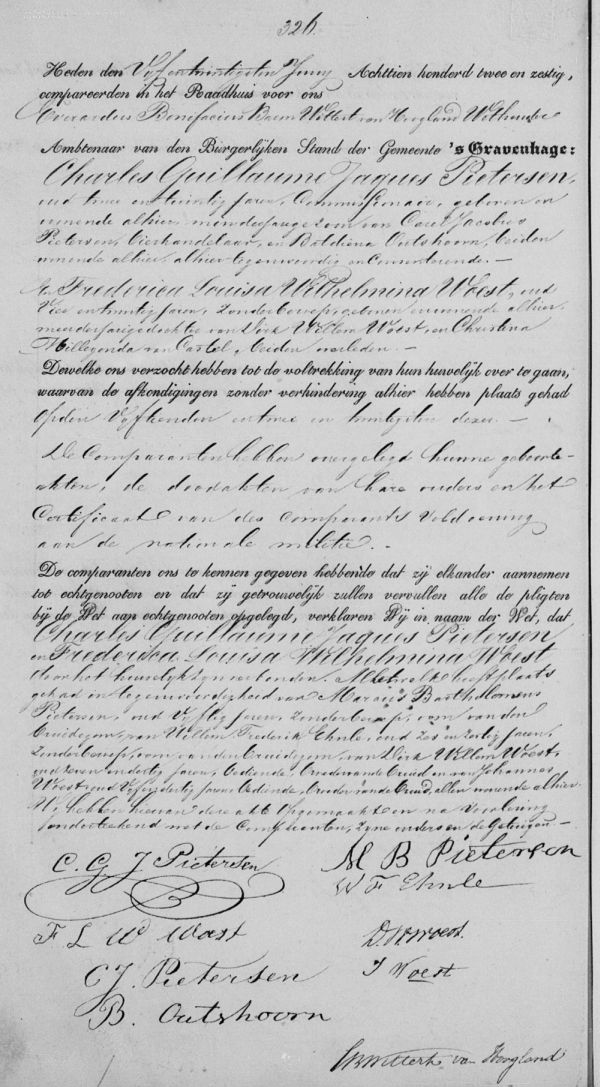 326.
Heden den Vijfentwintigsten Juny Achttien honderd twee en zestig,
compareerden in het Raadhuis voor ons
Everardus Bonifacius Wittert van Hoogland Wethouder
Ambtenaar van den Burgerlijken Stand der Gemeente 's Gravenhage:
Charles Guillaume Jaques Pietersen,
oud twee en twintig jaren, Commissionair, geboren en
wonende alhier, minderjarige zoon van Carel Jacobus
Pietersen, en Outshoorn, beiden
wonende alhier, alhier tegenwoordig en Consenterende. —
En Frederica Louisa Wilhelmina Woest, oud
Vier en twintig jaren, Zonder beroep, geboren en wonende alhier,
meerderjarige dochter van Dirk Willem Woest, en Christina
Hillegonda van Castel, beiden overleden —
Dewelke ons verzocht hebben tot de voltrekking van hun huwelijk over te gaan,
waarvan de afkondigingen zonder verhindering alhier hebben plaats gehad
op den Vijftienden en twee en twintigsten dezer. —
De Comparanten hebben overgelegd hunne geboorte-
akten, de doodakten van hare ouders en het
Certificaat van des Comparants Voldoening
aan de nationale militie. —
De comparanten ons te kennen gegeven hebbende dat zij elkander aannemen
tot echtgenooten en dat zij getrouwelijk zullen vervullen alle de pligten
bij de Wet aan echtgenooten opgelegd, verklaren Wij in naam der Wet, dat
Charles Guillaume Jaques Pietersen
en Frederica Louisa Wilhelmina Woest
door het huwelijk zijn verbonden. Metwelke heeft plaats
gehad in tegenwoordigheid van Marcus Bartholomeus
Pietersen, oud Vijftig jaren, zonder beroep, oom van den
Bruidegom, van Willem Frederik Ehnle, oud Zes en Veertig jaren,
Zonder beroep, oom van den Bruidegom, van Dirk Willem Woest,
oud Zeven en dertig jaren, Bediende, Broeder van de Bruid en van Johannes
Woest, oud Vijf en dertig jaren Bediende, Broeder van de Bruid, allen wonende alhier.
Wij hebben hiervan deze akte opgemaakt en na Voorlezing
onderteekend met de Comparanten, Zijne ouders en de Getuigen —
C. G. J Pietersen M B Pietersen
W F Ehnle
F L W Woest D W Woest.
C J. Pietersen J Woest
B. Outshoorn
Wittert van Hoogland